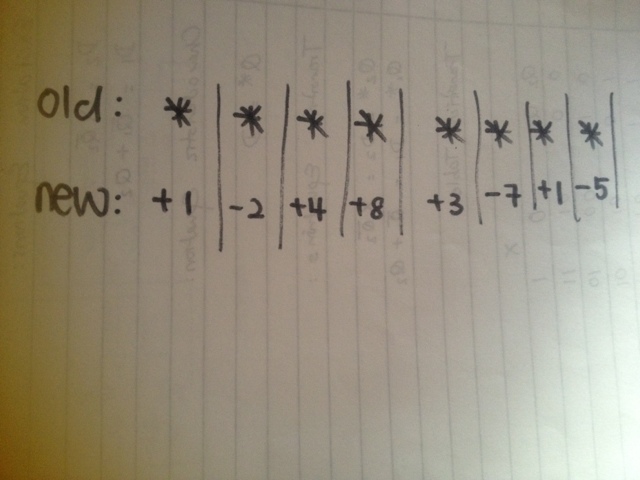 old: * | * | * | * | * | * | * | * |
new: +1 | -2 | +4 | +8 | +3 | -7 | +1 | -5 |